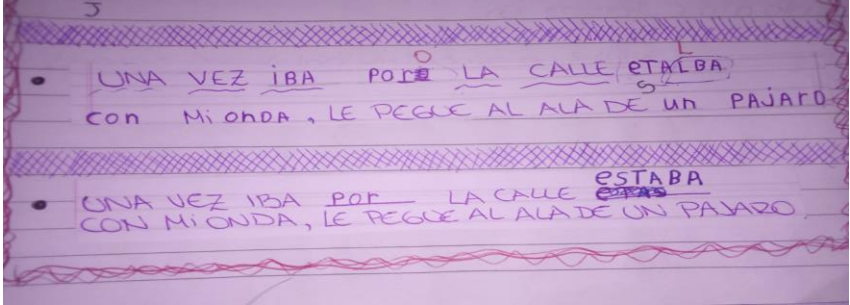 J
O L
UNA VEZ iBA Por LA CALLE eTALBA
S
con Mi onDA, LE PEGUE AL ALA DE un PAJArO
eSTABA
UNA VEZ IBA Por LA CALLE
CON Mi ONDA, LE PEGUE AL ALA DE UN PAJARO.